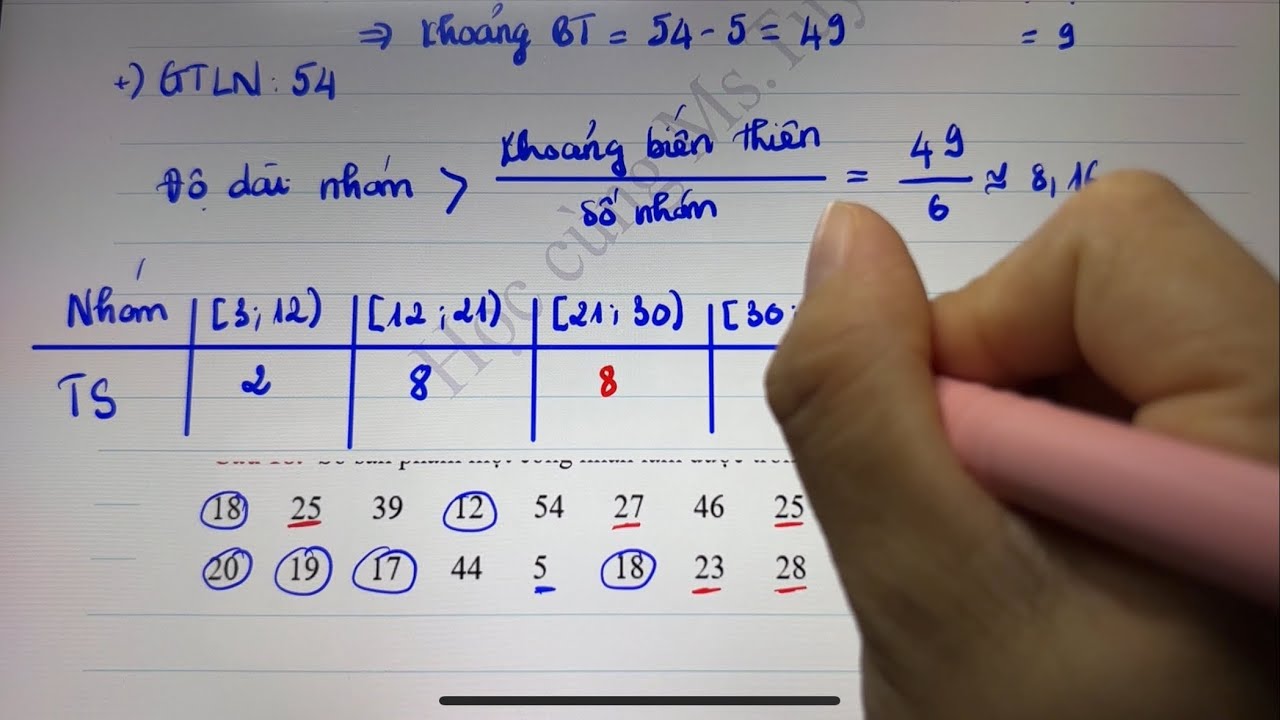 ⇒ Khoảng BT = 54 - 5 = 49 = 9
+) GTLN: 54
Độ dài nhóm > Khoảng biến thiên / số nhóm = 49/6 ≈ 8,16
Nhóm [3; 12) [12; 21) [21; 30) [30;
TS 2 8 8
18 25 39 12 54 27 46 25
20 19 17 44 5 18 23 28
Học cùng Ms.